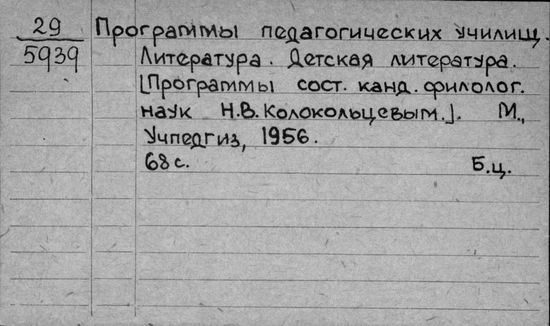 29 Программы педагогических училищ.
5939 Литература. Детская литература.
[Программы сост. канд. филолог.
наук Н.В. Колокольцевым.]. М.,
Учпедгиз, 1956.
68 с. Б.ц.